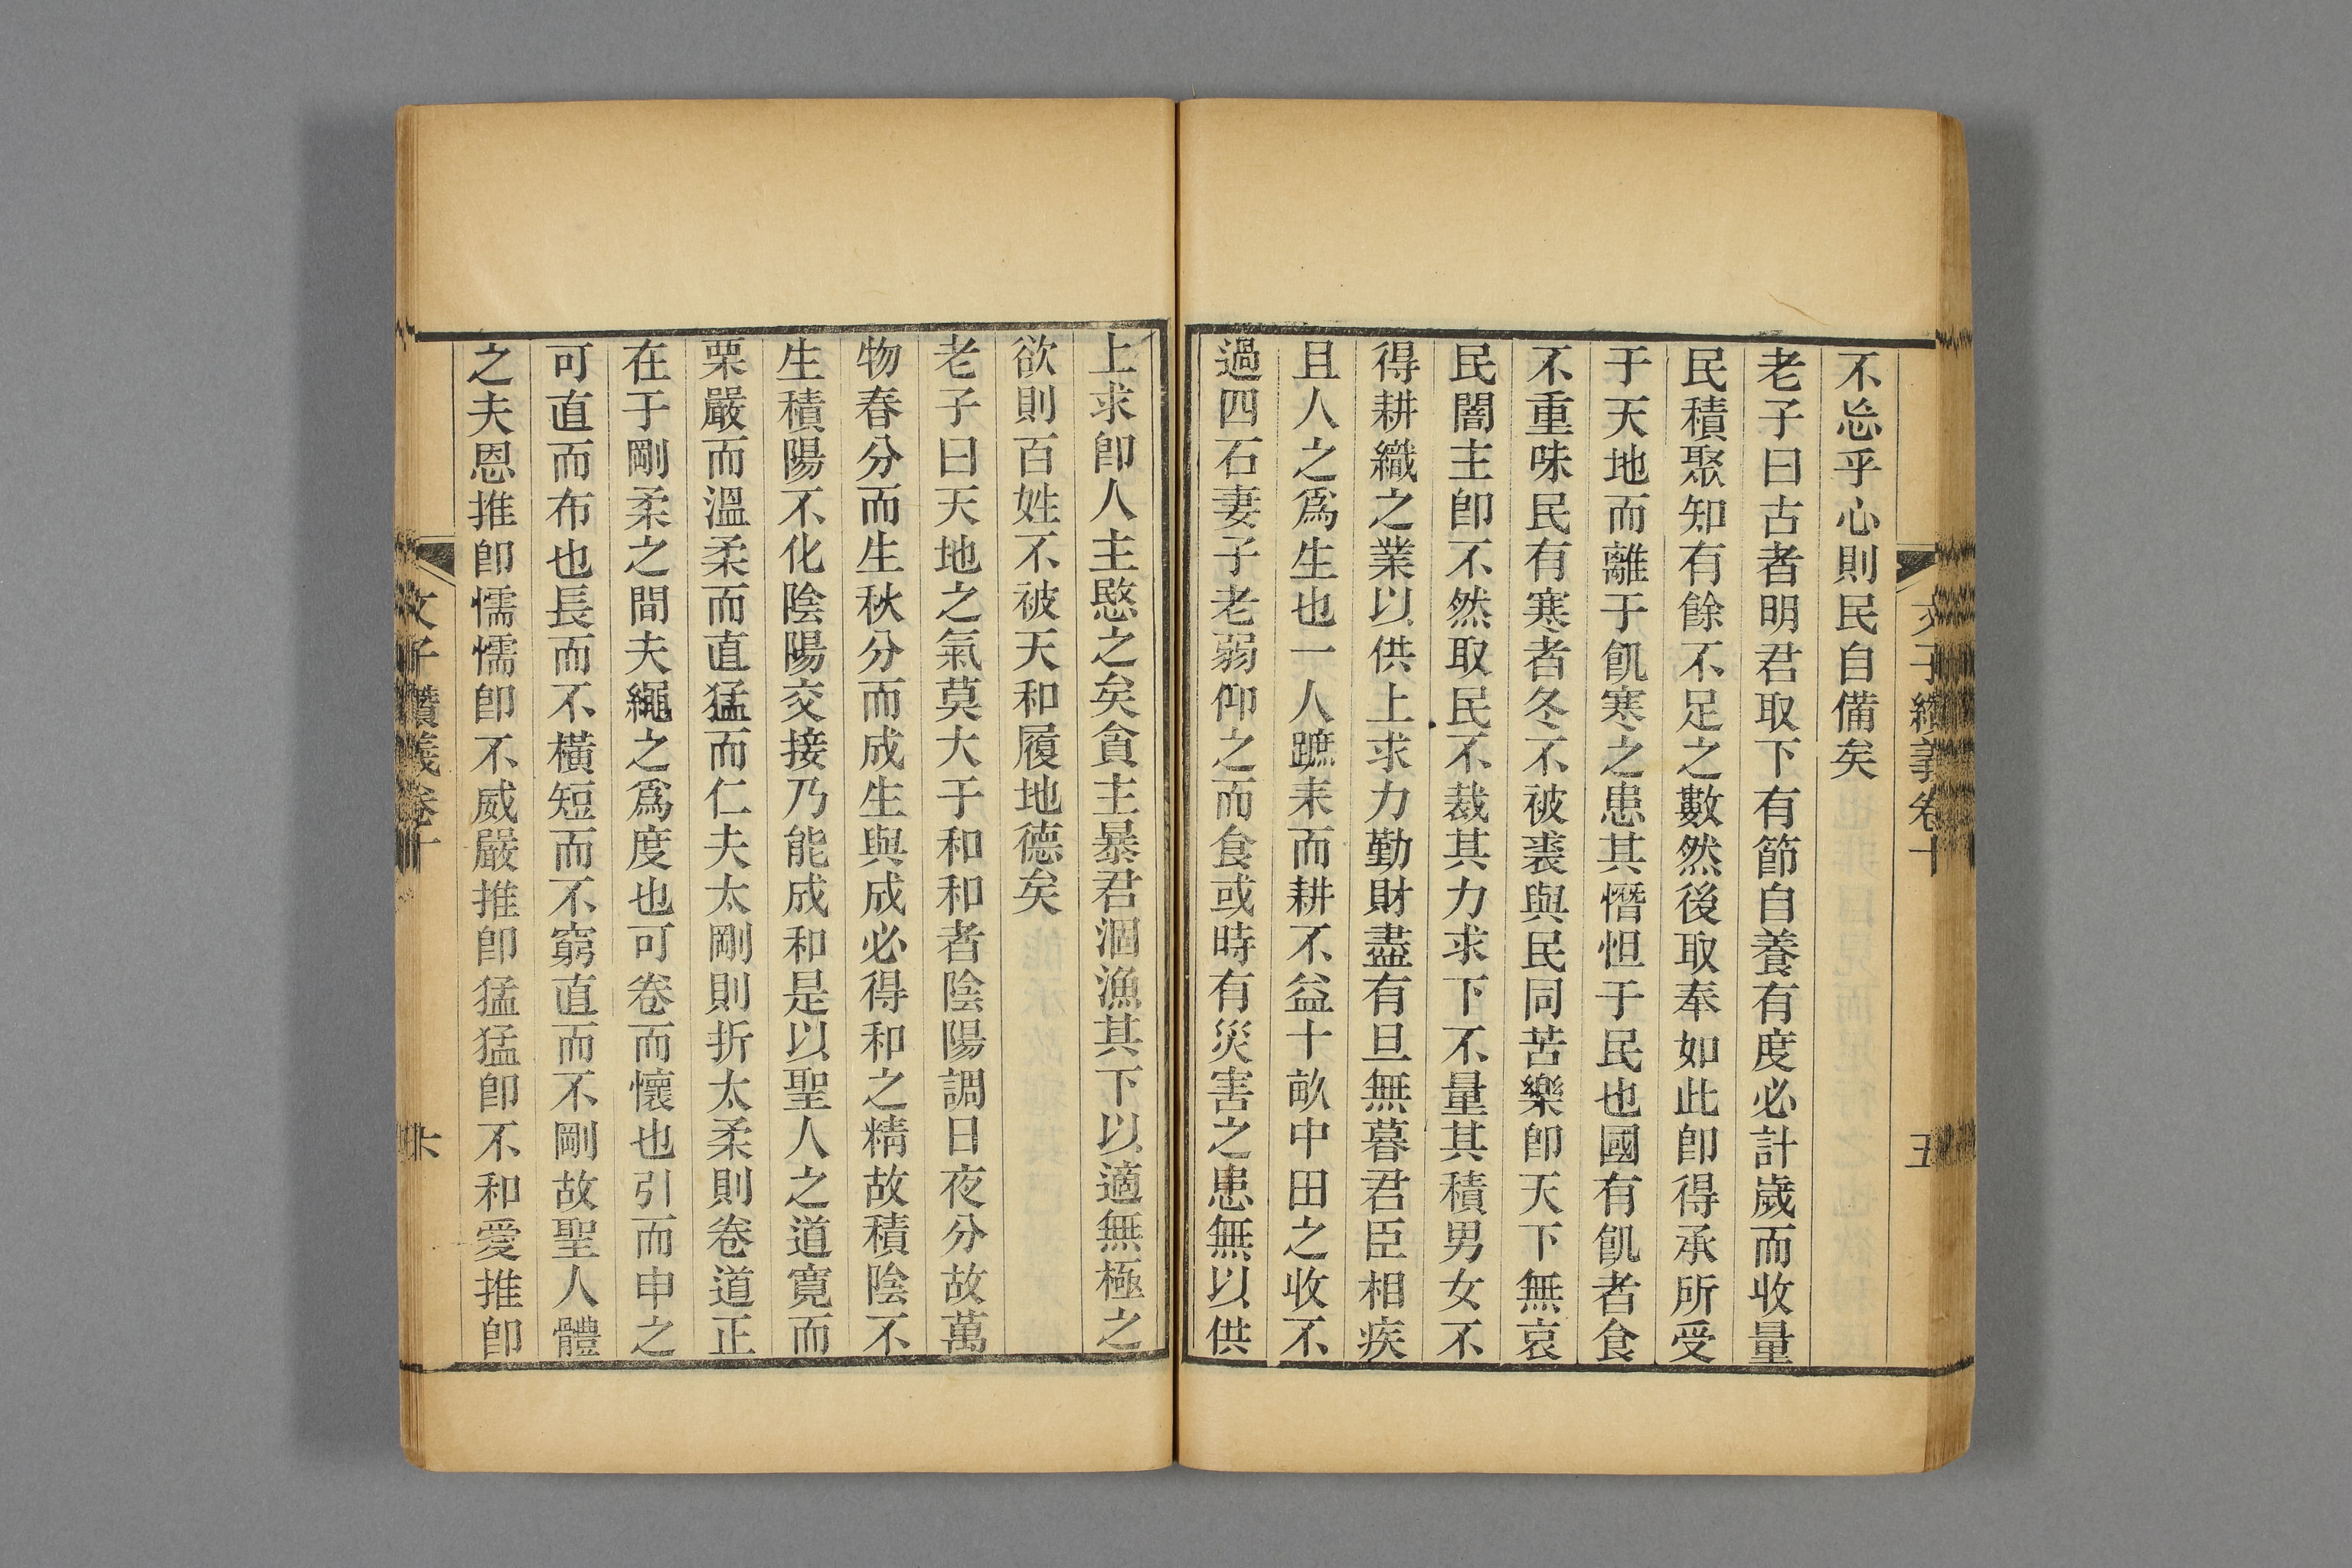 文子纘義卷十
五
不忘乎心則民自備矣
老子曰古者明君取下有節自養有度必計歲而收量
民積聚知有餘不足之數然後取奉如此卽得承所受
于天地而離于飢寒之患其憯怛于民也國有飢者食
不重味民有寒者冬不被裘與民同苦樂卽天下無哀
民闇主卽不然取民不裁其力求下不量其積男女不
得耕織之業以供上求力勤財盡有旦無暮君臣相疾
且人之爲生也一人蹠耒而耕不益十畝中田之收不
過四石妻子老弱仰之而食或時有災害之患無以供
上求卽人主愍之矣貪主暴君涸漁其下以適無極之
欲則百姓不被天和履地德矣
老子曰天地之氣莫大于和和者陰陽調日夜分故萬
物春分而生秋分而成生與成必得和之精故積陰不
生積陽不化陰陽交接乃能成和是以聖人之道寛而
栗嚴而溫柔而直猛而仁夫太剛則折太柔則卷道正
在于剛柔之間夫繩之爲度也可卷而懷也引而申之
可直而布也長而不橫短而不窮直而不剛故聖人體
之夫恩推卽懦懦卽不威嚴推卽猛猛卽不和愛推卽
文子纘義卷十